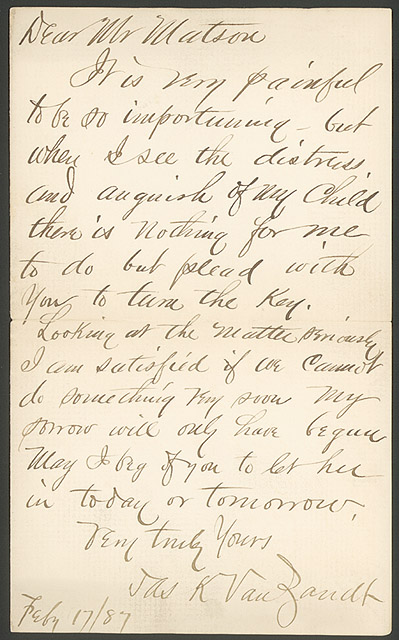 Dear Mr Matson
It is very painful
to be so importuning - but
when I see the distress
and anguish of my Child
there is nothing for me
to do but plead with
You to turn the Key.
Looking at the matter seriously
I am satisfied if we cannot
do something very soon my
sorrow will only have begun
May I beg of you to let her
in today or tomorrow.
Very truly Yours
Jas K Van Zandt
Feby 17/87